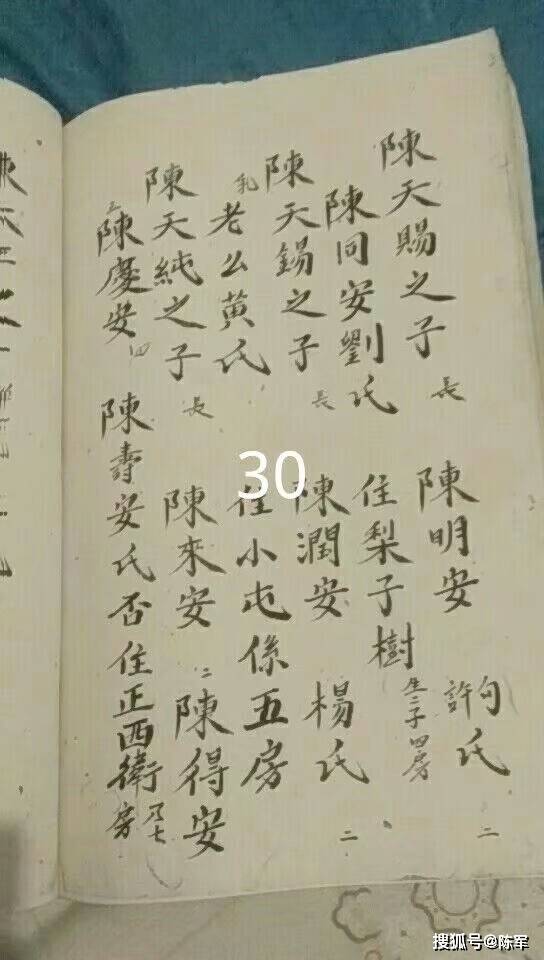 陳天賜之子 長 陳明安 句許氏 二
陳同安劉氏 住梨子樹 生二子 四房
陳天錫之子 長 陳潤安 楊氏 二
老么黃氏 住小屯係五房
陳天純之子 長 陳來安 二 陳得安
三 陳慶安 四 陳壽安氏否住正西衛 乃七房
30
搜狐号@陈军